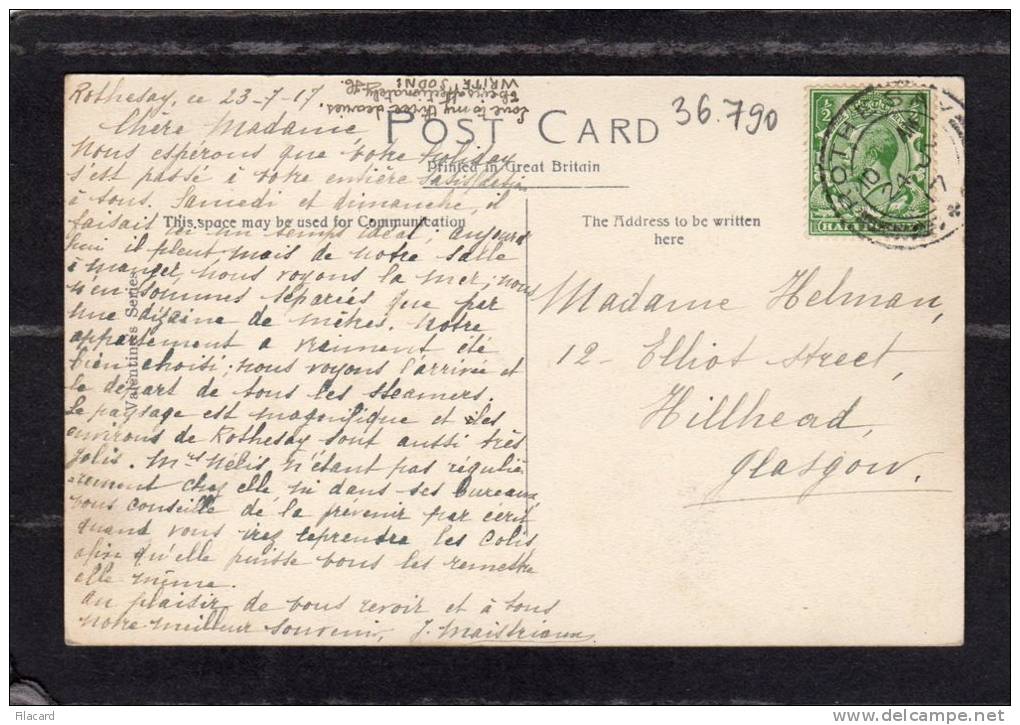 Rothesay, ce 23-7-17
Chère Madame,
Nous espérons que votre holiday
s'est passé à votre entière satisfaction
à tous. Samedi et dimanche, il
faisait ici un temps idéal; aujourd'
hui il pleut, mais de notre salle
à manger, nous voyons la mer; nous
n'en sommes séparés que par
une dizaine de mètres. Notre
appartement a vraiment été
bien choisi; nous voyons l'arrivée et
le départ de tous les steamers.
Le paysage est magnifique et les
environs de Rothesay sont aussi très
jolis. Mrs Nélis n'étant pas réguliè
rement chez elle ni dans ses bureaux
vous conseille de la prévenir par écrit
quand vous irez reprendre les colis
afin qu'elle puisse vous les remettre
elle même.
Au plaisir de vous revoir et à tous
notre meilleur souvenir, J.
Love to my three dearies.
affectionately
WRITE "SOON"
POST CARD
Printed in Great Britain
This space may be used for Communication
The Address to be written
here
Valentine's Series
36.790
½
½
HALFPENNY
ROTHESAY
10 AM
24 JY
17
Madame Helman,
12 - Elliot street,
Hillhead,
Glasgow.
Filacard
delcampe.net